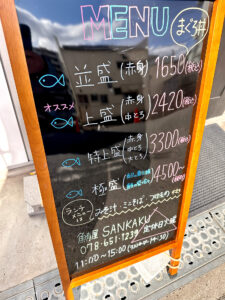 MENU
まぐろ丼
並盛 (赤身) 1650 (税込)
オススメ
上盛 (赤身 中とろ) 2420 (税込)
特上盛 (赤身 中とろ 大とろ) 3300 (税込)
極盛 4500~ (税込)
ランチメニューは
みそ汁・ミニそば
SANKAKU
078-651-1239
11:00~15:00